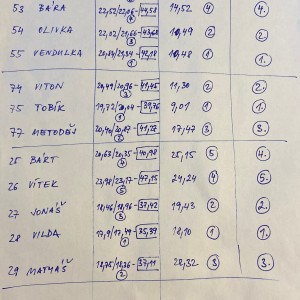 53 BÁRA 22,52/22,06 - 44,58 14,52 4 4.
54 OLIVKA 22,02/21,66 - 43,68 10,49 2 2.
3
55 VENDULKA 20,84/21,34 - 42,18 10,48 1 1.
1
74 VITON 20,49/20,96 - 41,45 11,30 2 2.
3
75 TOBÍK 19,72/20,04 - 39,76 9,01 1 1.
1
77 METODĚJ 20,40/20,87 - 41,27 17,47 3 3.
2
25 BÁRT 20,63/20,35 - 40,98 25,15 5 4.
4
26 VÍTEK 23,98/23,17 - 47,15 24,24 4 5.
5
27 JONÁŠ 18,46/18,96 - 37,42 19,43 2 2.
3
28 VILDA 17,9/17,49 - 35,39 18,10 1 1.
1
29 MATYÁŠ 18,75/18,36 - 37,11 28,32 3 3.
2